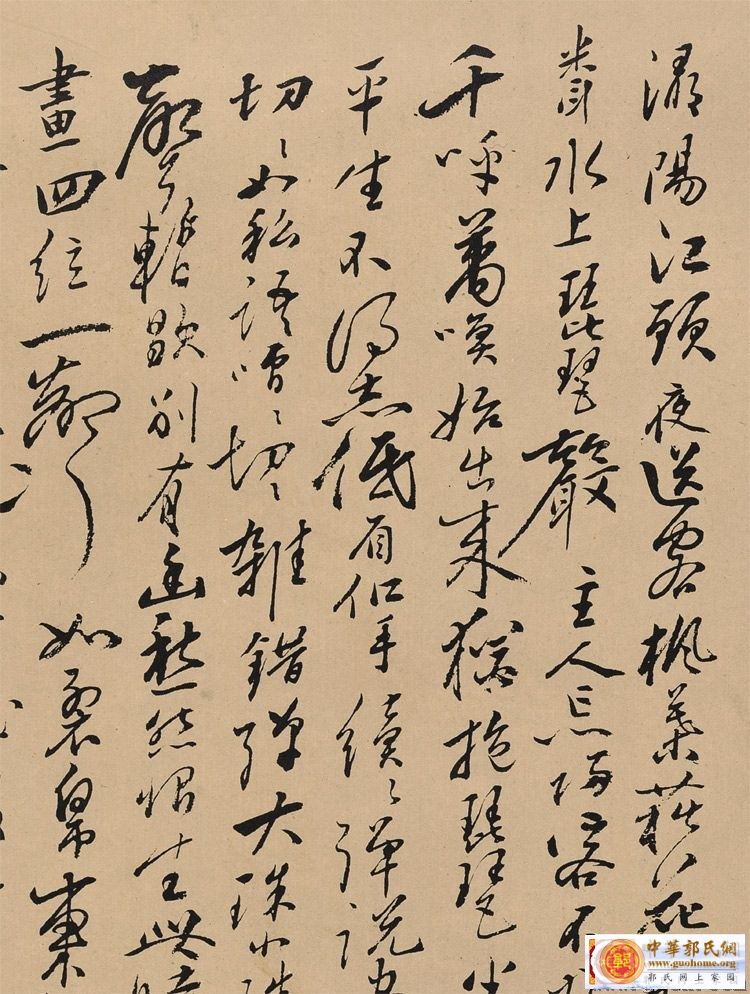 潯陽江頭夜送客楓葉荻花
水上琵琶聲主人忘歸客不
千呼萬喚始出來猶抱琵琶半
平生不得志低眉信手續〻彈說盡
切〻如私語嘈〻切〻雜錯彈大珠小珠
聲暫歇別有幽愁恨生此時
畫四絃一聲如裂帛東
中華郭氏網
www.guohome.org
郭氏网上家园